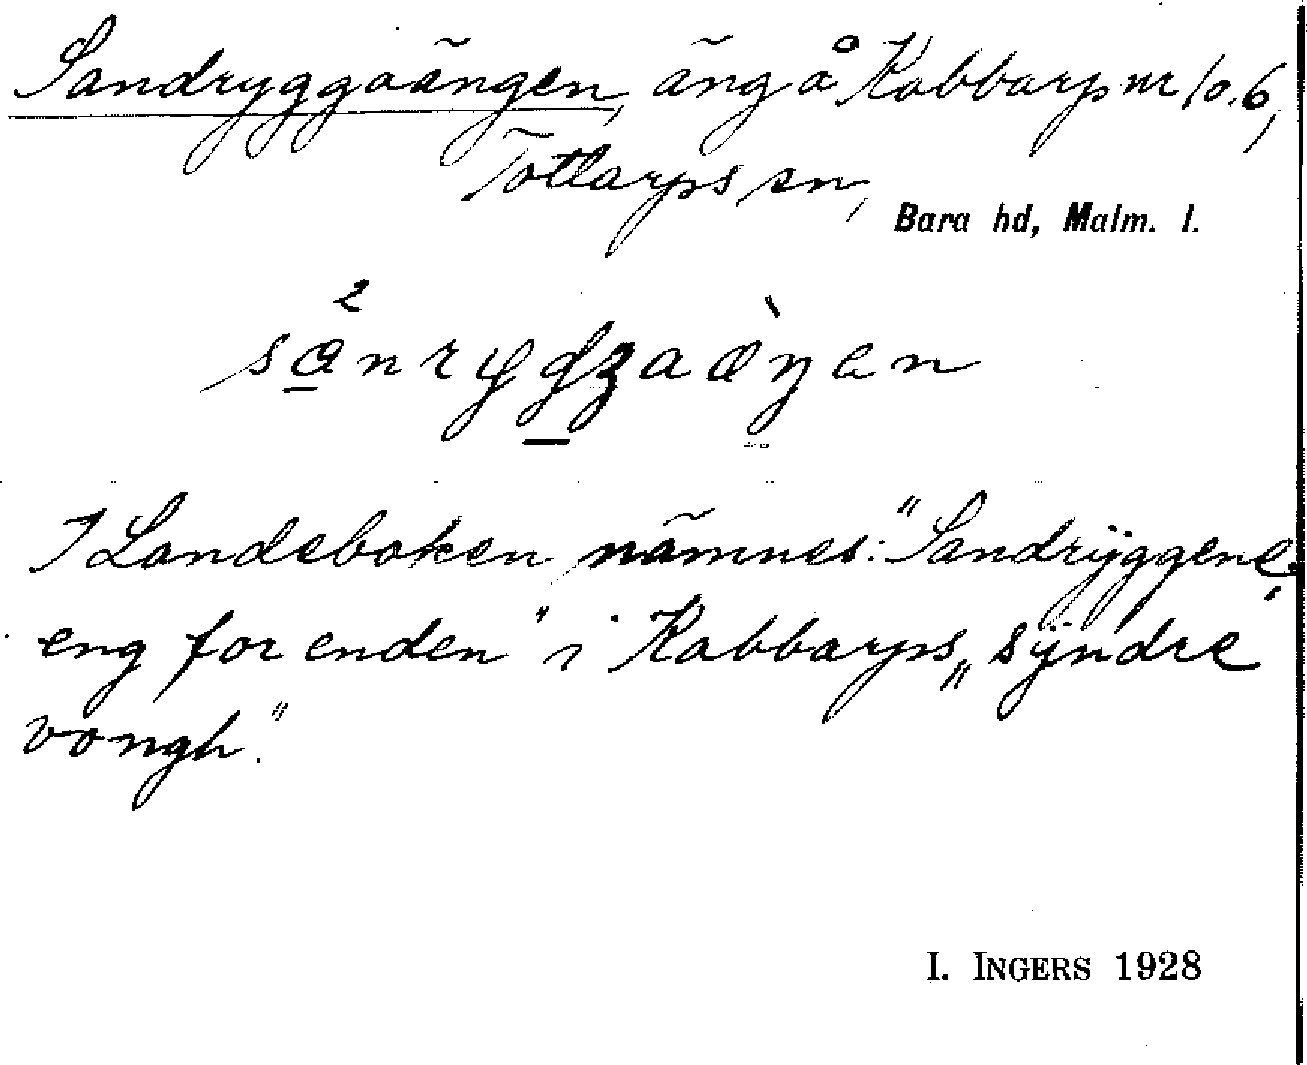 Sandryggaängen, äng å Kabbarp nr 1 o. 6,
Tottarps sn,
Bara hd, Malm. l.
I Landeboken nämnes: "Sandrÿggene,
eng for enden" i Kabbarps „sÿndre
vongh."
I. INGERS 1928